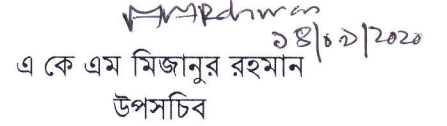 ১৪/০৯/২০২০
এ কে এম মিজানুর রহমান
উপসচিব